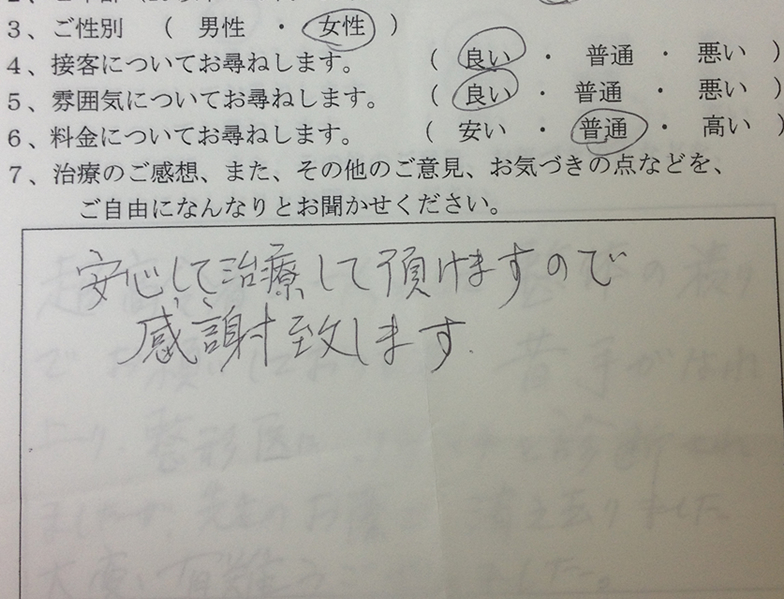 3、ご性別 ( 男性 ・ 女性 )
4、接客についてお尋ねします。 ( 良い ・ 普通 ・ 悪い )
5、雰囲気についてお尋ねします。 ( 良い ・ 普通 ・ 悪い )
6、料金についてお尋ねします。 ( 安い ・ 普通 ・ 高い )
7、治療のご感想、また、その他のご意見、お気づきの点などを、
ご自由になんなりとお聞かせください。
安心して治療して頂けますので
感謝致します.